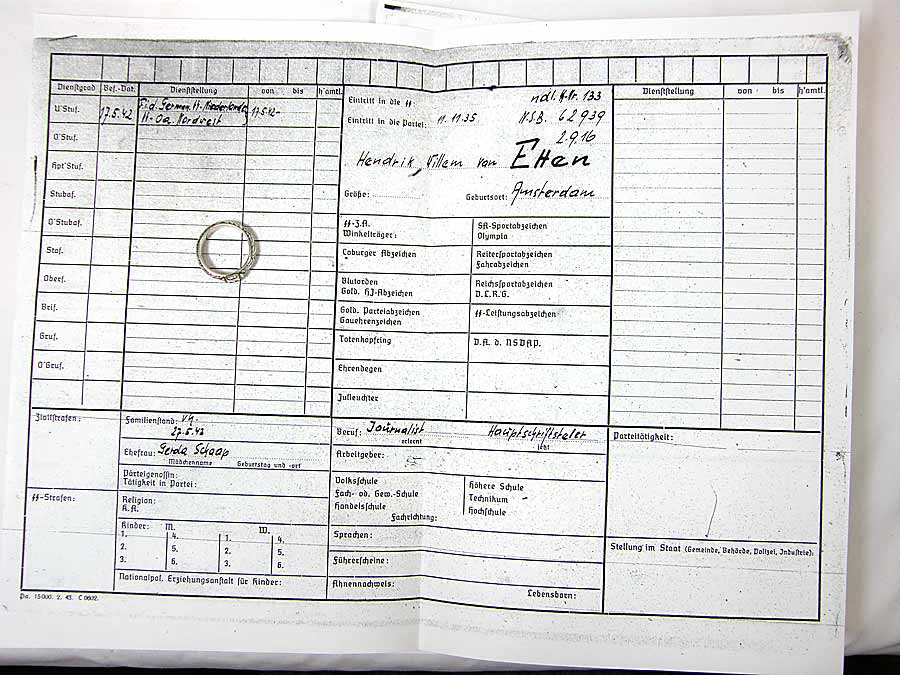 Dienstgrad Bef.-Dat. Dienststellung von bis h'amtl.
U'Stuf. 17.5.42 F.i.d. German. SS-Niederlande 17.5.42-
SS-Oa. Nordwest
O'Stuf.
Hpt'Stuf.
Stubaf.
O'Stubaf.
Staf.
Oberf.
Brif.
Gruf.
O'Gruf.
Eintritt in die SS ndl. SS-Nr. 133
Eintritt in die Partei: 11.11.35. N.S.B. 62939
2.9.16
Hendrik, Villem van Etten
Größe: Geburtsort: Amsterdam
SS-Z.A.
Winkelträger:
SA-Sportabzeichen
Olympia
Coburger Abzeichen
Reitersportabzeichen
Fahrabzeichen
Blutorden
Gold. HJ-Abzeichen
Reichssportabzeichen
D.L.R.G.
Gold. Parteiabzeichen
Gauehrenzeichen
SS-Leistungsabzeichen
Totenkopfring
D.A. d. NSDAP.
Ehrendegen
Julleuchter
Dienststellung von bis h'amtl.
Zivilstrafen:
SS-Strafen:
Familienstand: vh.
27.5.43
Ehefrau: Gerda Schaap
Mädchenname Geburtstag und -ort
Parteigenossin:
Tätigkeit in Partei:
Religion:
K.A.
Kinder: M. W.
1. 4. 1. 4.
2. 5. 2. 5.
3. 6. 3. 6.
Nationalpol. Erziehungsanstalt für Kinder:
Beruf: Journalist Hauptschriftsteller
erlernt jetzt
Arbeitgeber:
Volksschule
Fach- od. Gew.-Schule
Handelsschule
Fachrichtung:
Höhere Schule
Technikum
Hochschule
Sprachen:
Führerscheine:
Ahnennachweis:
Lebensborn:
Parteitätigkeit:
Stellung im Staat (Gemeinde, Behörde, Polizei, Industrie):
Pa. 15000. 2. 43. C 0602.